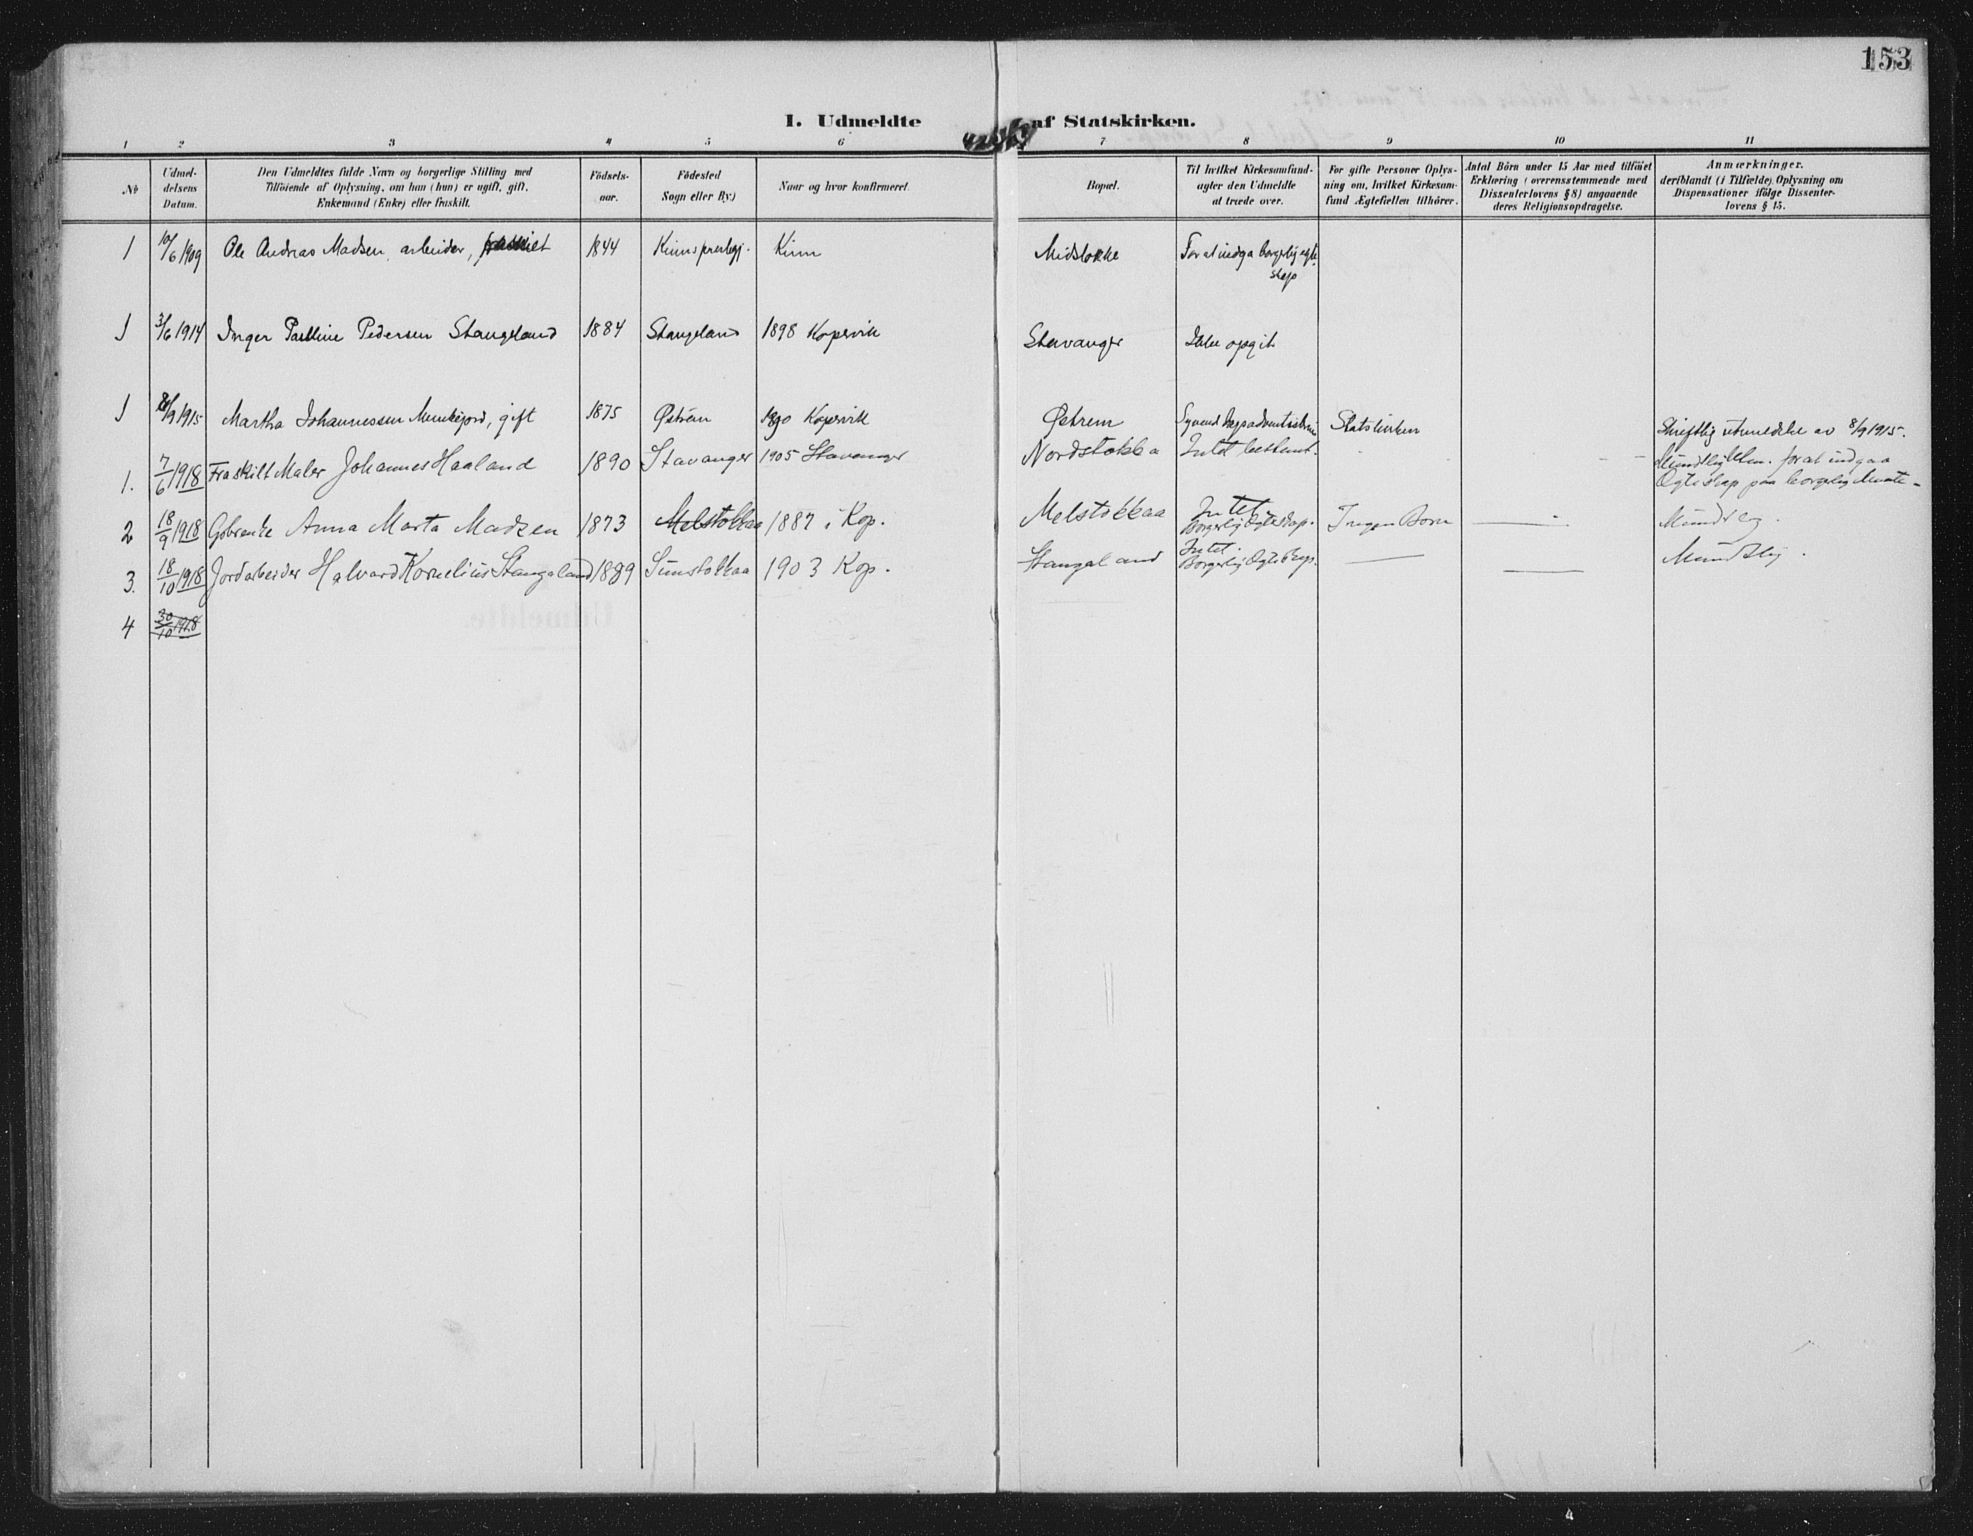 153
I. Udmeldte af Statskirken.
1 2 3 4 5 6 7 8 9 10 11
No
Udmel-
delsens
Datum.
Den Udmeldtes fulde Navn og borgerlige Stilling med
Tilföiende af Oplysning, om han (hun) er ugift, gift,
Enkemand (Enke) eller fraskilt.
Födsels-
aar.
Födested
Sogn eller By.)
Naar og hvor konfirmeret.
Bopæl.
Til hvilket Kirkesamfund
agter den Udmeldte
at træde over.
For gifte Personer Oplys-
ning om, hvilket Kirkesam-
fund Ægtefællen tilhörer.
Antal Börn under 15 Aar med tilföiet
Erklæring i overensstemmende med
Dissenterlovens § 8) angaaende
deres Religionsopdragelse.
Anmærkninger.
deriblandt (i Tilfælde) Oplysning om
Dispensationer ifölge Dissenter-
lovens § 15.
1 10/6 1909 Ole Andreas Madsen, arbeider, 1844 Kinns prestegj. Kinn Midstokke For at indgå borgerlig egte
skap
1 3/6 1914 Inger Pauline Pedersen Stangeland 1884 Stangeland 1898 Kopervik Stavanger Ikke opgit
1 8/9 1915 Martha Johannessen Munkejord, gift 1875 Østrem 1890 Kopervik Østrem Syvend dags adventisterne Statskirken Skriftlig utmeldelse av 8/9 1915.
1. 7/6 1918 Fraskilt Maler Johannes Haaland 1890 Stavanger 1905 Stavanger Nordstokka Intet bestemt. Mundtlig Utm. for at indgaa
Ægteskap paa borgerlig Maate
2 18/9 1918 Anna Marta Madsen 1873 Melstokkaa 1887 i Kop. Melstokkaa Intet.
Borgerlig Ægteskap. Ingen Born Mundtlig.
3. 18/10 1918 Jordarbeider Halvard Kornelius Stangaland 1889 Sunstokkaa 1903 Kop. Stangaland Intet.
Borgerlig Ægteskap. Mundtlig.
4 30/10 1918